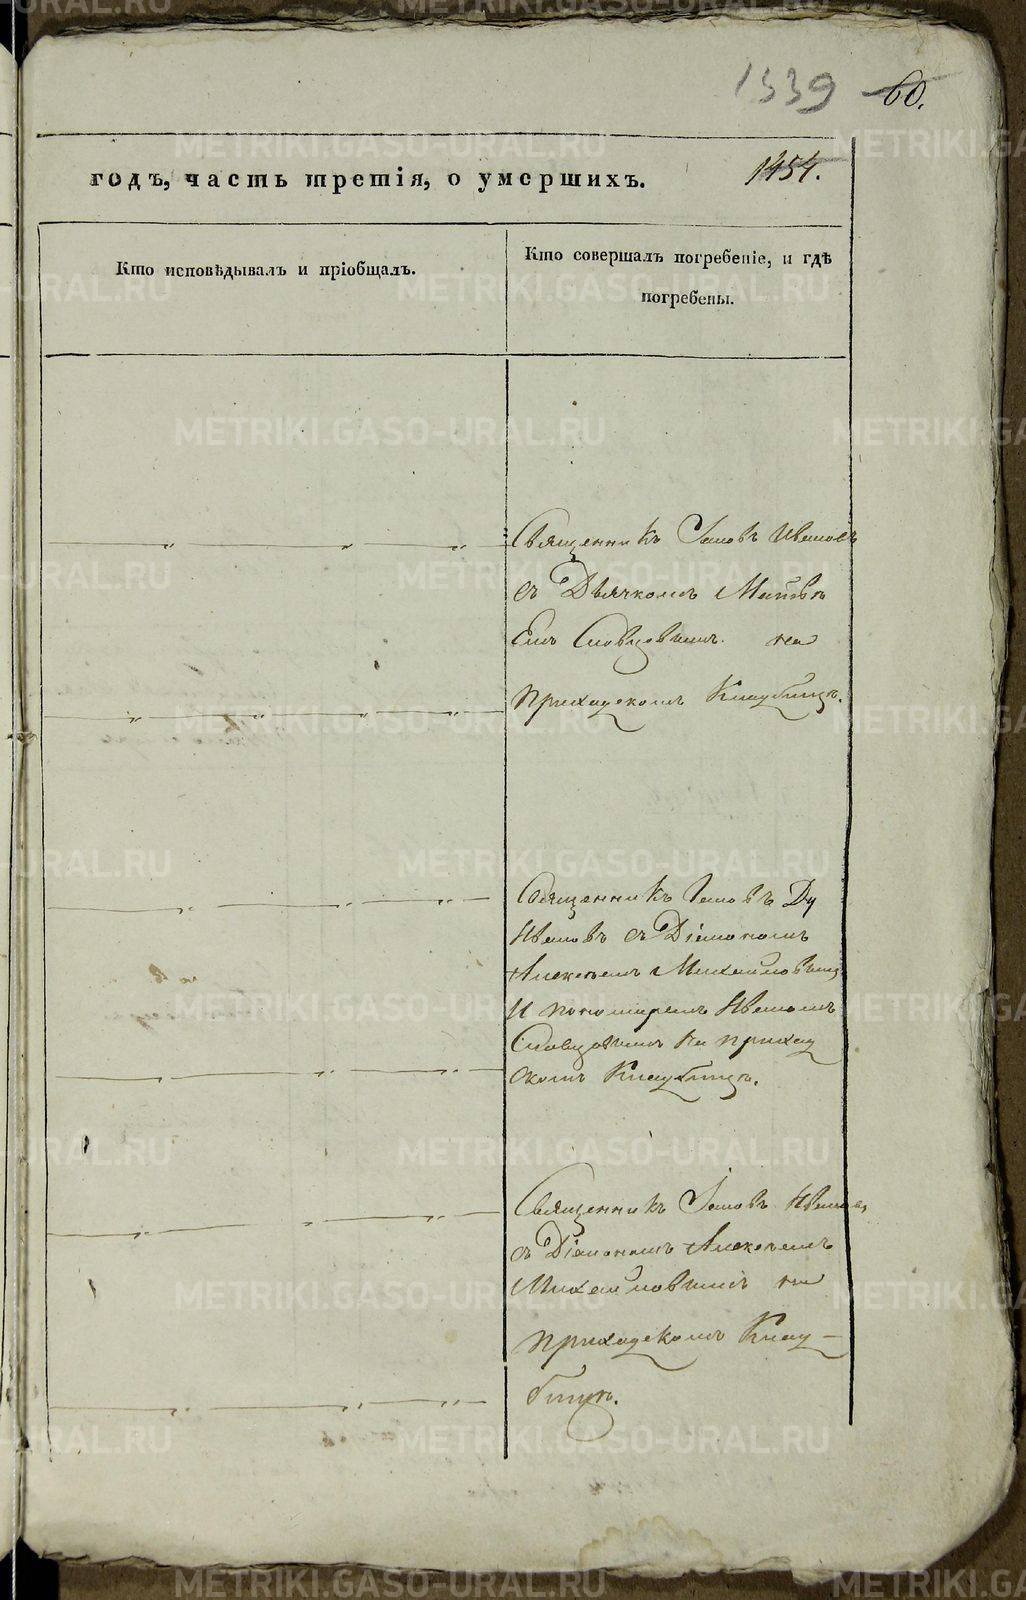 1339 60.
годъ, часть третія, о умершихъ. 1454.
Кто исповѣдывалъ и пріобщалъ.
Кто совершалъ погребеніе, и гдѣ
погребены.
Священникъ Іаковъ Ивановъ
съ Дьячкомъ Матѳѣ
емъ Словцовымъ на
приходскомъ Кладбищѣ.
Священникъ Іаковъ
Ивановъ съ Діакономъ
Алексѣемъ Михайловымъ
И пономаремъ Иваномъ
Словцовымъ на приход
скомъ Кладбищѣ.
Священникъ Іаковъ Ивановъ
съ Діакономъ Алексѣемъ
Михайловымъ на
приходскомъ Клад-
бищѣ.
METRIKI.GASO-URAL.RU